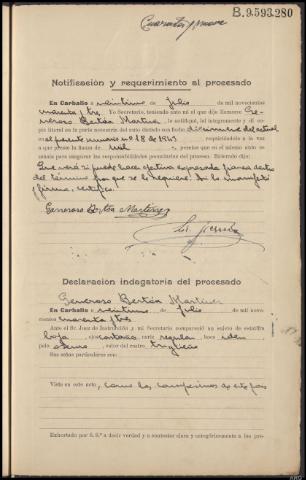 B.9.593.280
Cuarenta y nueve
Notificación y requerimiento al procesado
En Carballo a veintiuno de Julio de mil novecientos
cuarenta y tres, Yo Secretario, teniendo ante mí al que dijo llamarse Ge-
neroso Bertóa Martínez, le notifiqué, leí íntegramente y di co-
pia literal en la parte necesaria del auto dictado con fecha diecinueve del actual
en el presente sumario nº 88 de 1943
a que preste la fianza de mil pesetas que en el mismo auto se
señala para asegurar las responsabilidades pecuniarias del proceso. Enterado dijo:
Que verá si puede hacer efectiva expresada fianza dentro
del término porque se le requiere. Así lo manifestó
y firma, certifico.
Generoso Bertóa Martínez
Declaración indagatoria del procesado
Generoso Bertóa Martínez
En Carballo a veintiuno de Julio de mil nove-
cientos cuarenta y tres
Ante el Sr. Juez de Instrucción y mi Secretario compareció un sujeto de estatura
baja, ojos castaños, nariz regular, boca idem
pelo, color del rostro trigueño
Sus señas particulares son:
Viste en este acto, como los campesinos de este país
Exhortado por S. S.ª a decir verdad y a contestar clara y categóricamente a las pre-